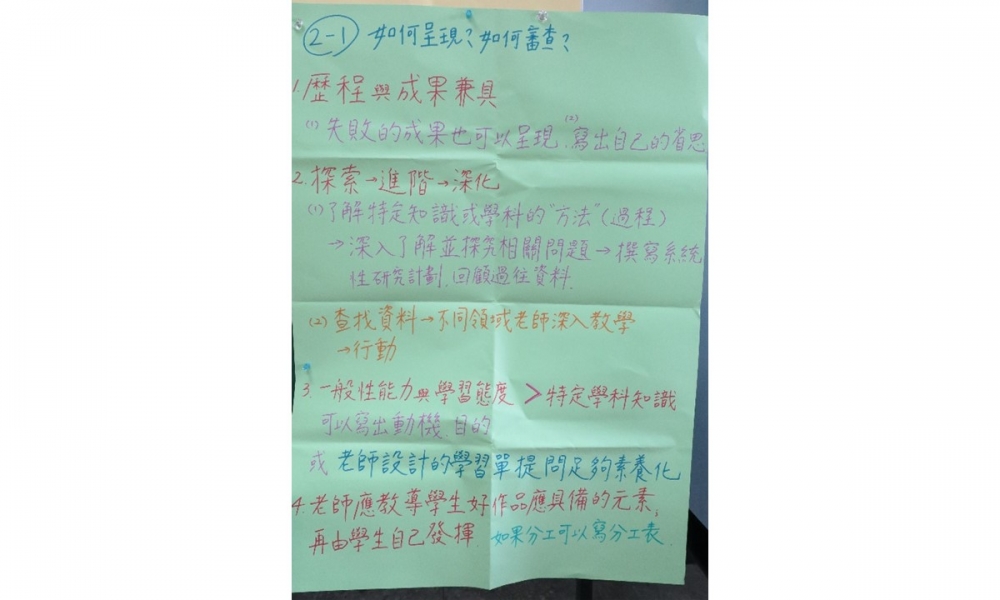 2-1 如何呈現?如何審查?
1.歷程與成果兼具
(1)失敗的成果也可以呈現.(2)寫出自己的省思
2.探索→進階→深化
(1)了解特定知識或學科的"方法"(過程)
→深入了解並探究相關問題→撰寫系統
性研究計劃.回顧過往資料.
(2)查找資料→不同領域老師深入教學
→行動
3.一般性能力與學習態度>特定學科知識
可以寫出動機.目的
或 老師設計的學習單提問足夠素養化
4.老師應教導學生好作品應具備的元素,
再由學生自己發揮.如果分工可以寫分工表.